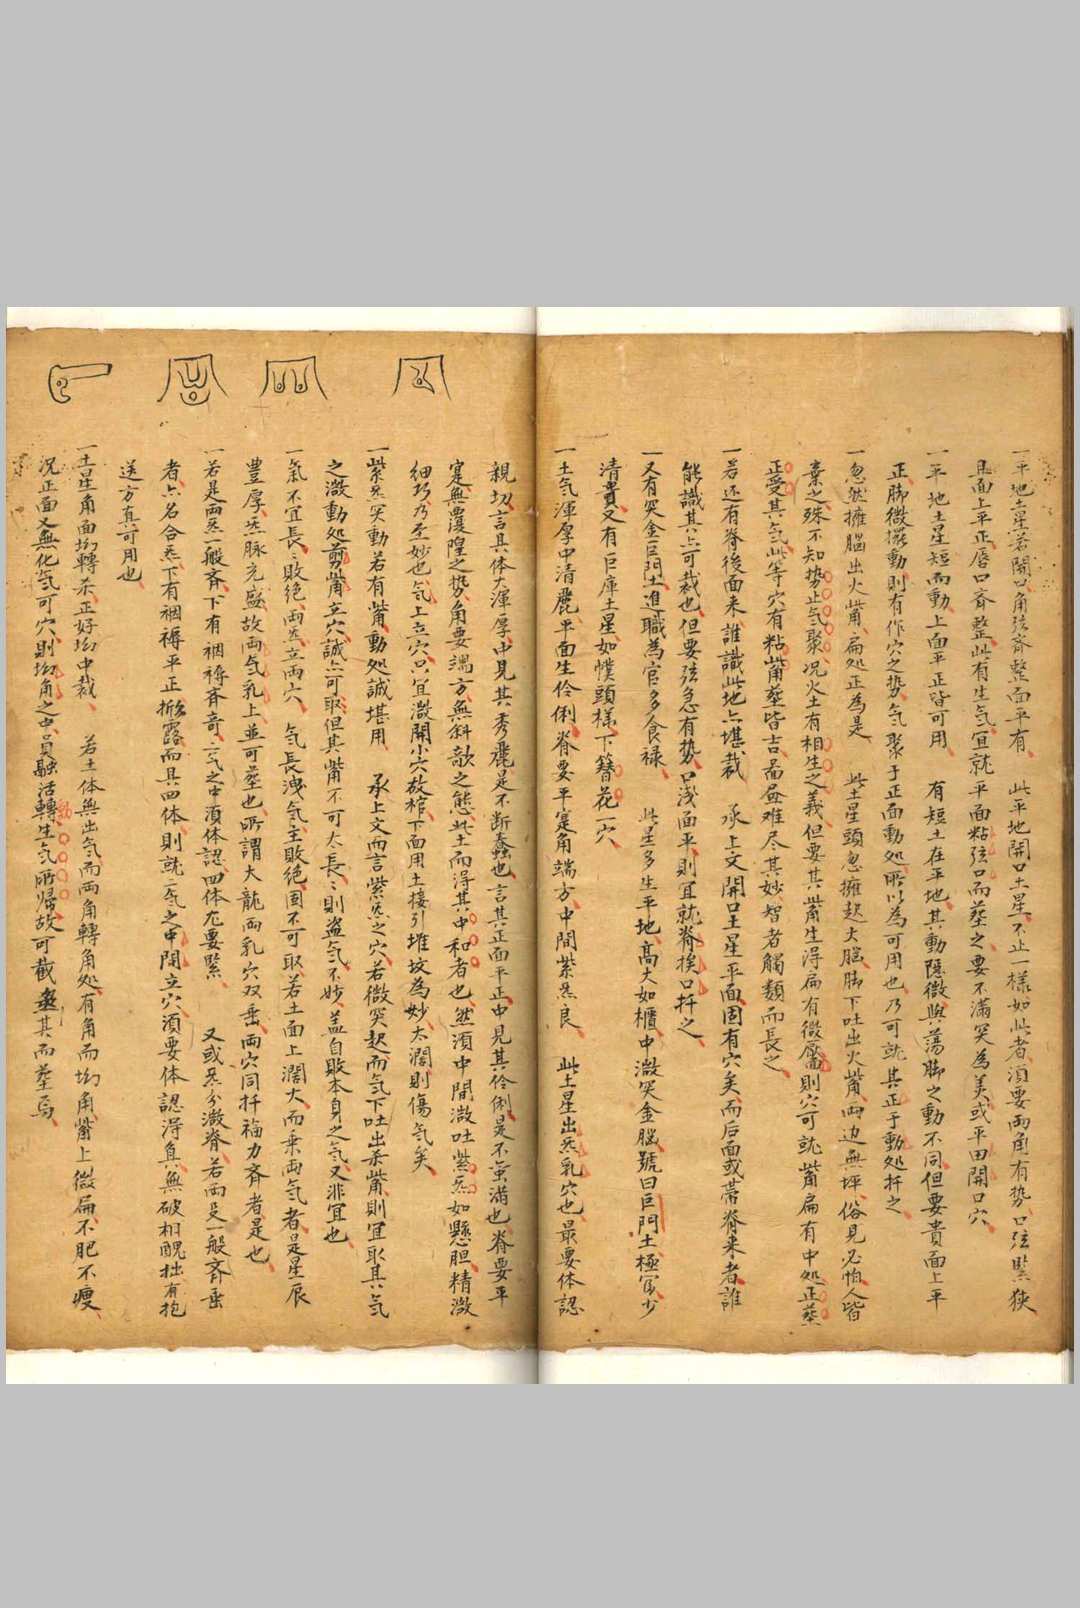 一平地土星若開口角弦齊整面平有　此平地開口土星不止一樣如此者湏要兩角有势口弦緊狹
且面上平正唇口齊整此有生气宜就平面粘弦口而塟之要不滿突為美或平田開口穴
一平地土星短而動上面平正皆可用　有短土在平地其動隱微與蕩脚之動不同但要貴面上平
正脚微擺動則有作穴之势气聚于正面動処所以為可用也乃可就其正于動処扦之
一忽然擁腦出火觜扁処正為是　此土星頭忽擁起大腦脚下吐出火觜兩边無坪俗見必怕人皆
棄之殊不知势止气聚况火土有相生之義但要其觜生得扁有微靨則穴可就觜扁有中処正塟
正受其气此等穴有粘觜塟皆吉啚畫难尽其妙智者觸類而長之
一若还有脊後面来誰識此地亦堪裁　承上文開口土星平面固有穴矣而后面或帶脊来者誰
能識其亦可裁也但要弦急有势口浅面平則宜就脊挨口扦之
一又有突金巨門土進職為官多食禄　此星多生平地高大如櫃中微突金腦號曰巨門土極富少
清貴又有巨庫土星如幞頭樣下簪花一穴
一土气渾厚中清麗平面生伶俐脊要平寔角端方中間紫炁良　此土星出炁乳穴也最要体認
親切言其体大渾厚中見其秀麗是不断蠢也言其正面平正中見其伶俐是不䖝滿也脊要平
寔無覆隍之势角要端方無斜欹之態此土而得其中和者也然湏中間微吐紫炁如懸胆精微
細巧乃至妙也气上立穴只宜微開小穴放棺下面用土接引堆坟為妙太濶則傷气矣
一紫炁突動若有觜動処誠堪用　承上文而言紫炁之穴若微突起而气下吐出杀觜則宜取其气
之微動処剪觜立穴誠亦可取但其觜不可太長〻則盗气不妙盖自敗本身之气又非宜也
一氣不宜長敗絶兩炁立兩穴　气長洩气主敗絶固不可取若土面上濶大而乗兩气者是星辰
豊厚炁脉充盛故両气乳上並可塟也所謂大龍両乳穴双垂両穴同扦福力齊者是也
一若是両炁一般齊下有裀褥齊竒二气之中湏体認四体尨要緊　又或炁分微脊若両叏一般齊垂
者亦名合炁下有裀褥平正掀露而具四体則就二气之中間立穴湏要体認得真無破相醜拙有抱
送方真可用也
一土星角面拗轉杀正好拗中裁　若土体無出气而両角轉角処有角而拗角觜上微扁不肥不瘦
况正面又無化气可穴則拗角之中員融活轉生气所帰故可截其而塟焉